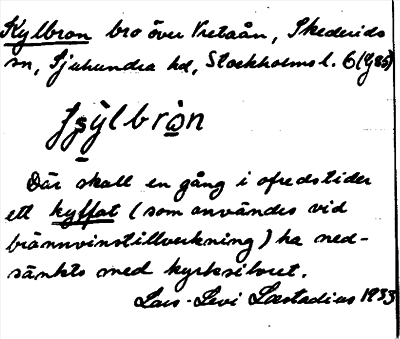 Kylbron bro över Vretaån, Skederids
sn, Sjuhundra hd, Stockholms l.
bròn
Där skall en gång i ofredstider
ett kyffat (som användes vid
brännvinstillverkning) ha ned-
sänkts med kyrksilvret.
Lars-Levi Læstadius 1933